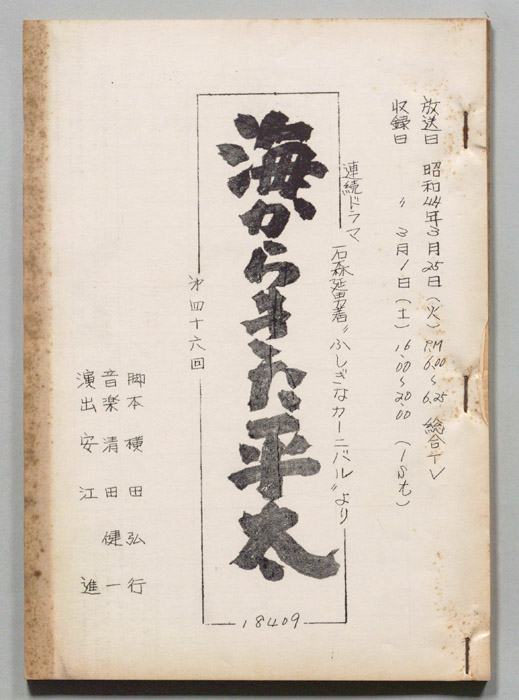 放送日 昭和44年3月25日(火) P.M 6.00～6.25 総合テレ
収録日 〃 3月1日(土) 16.00～20.00
連続ドラマ
石森延男著〝ふしぎなカーニバル〟より
海からきた平太
第四十六回
18409
脚本 横田弘行
音楽 清田健一
演出 安江進